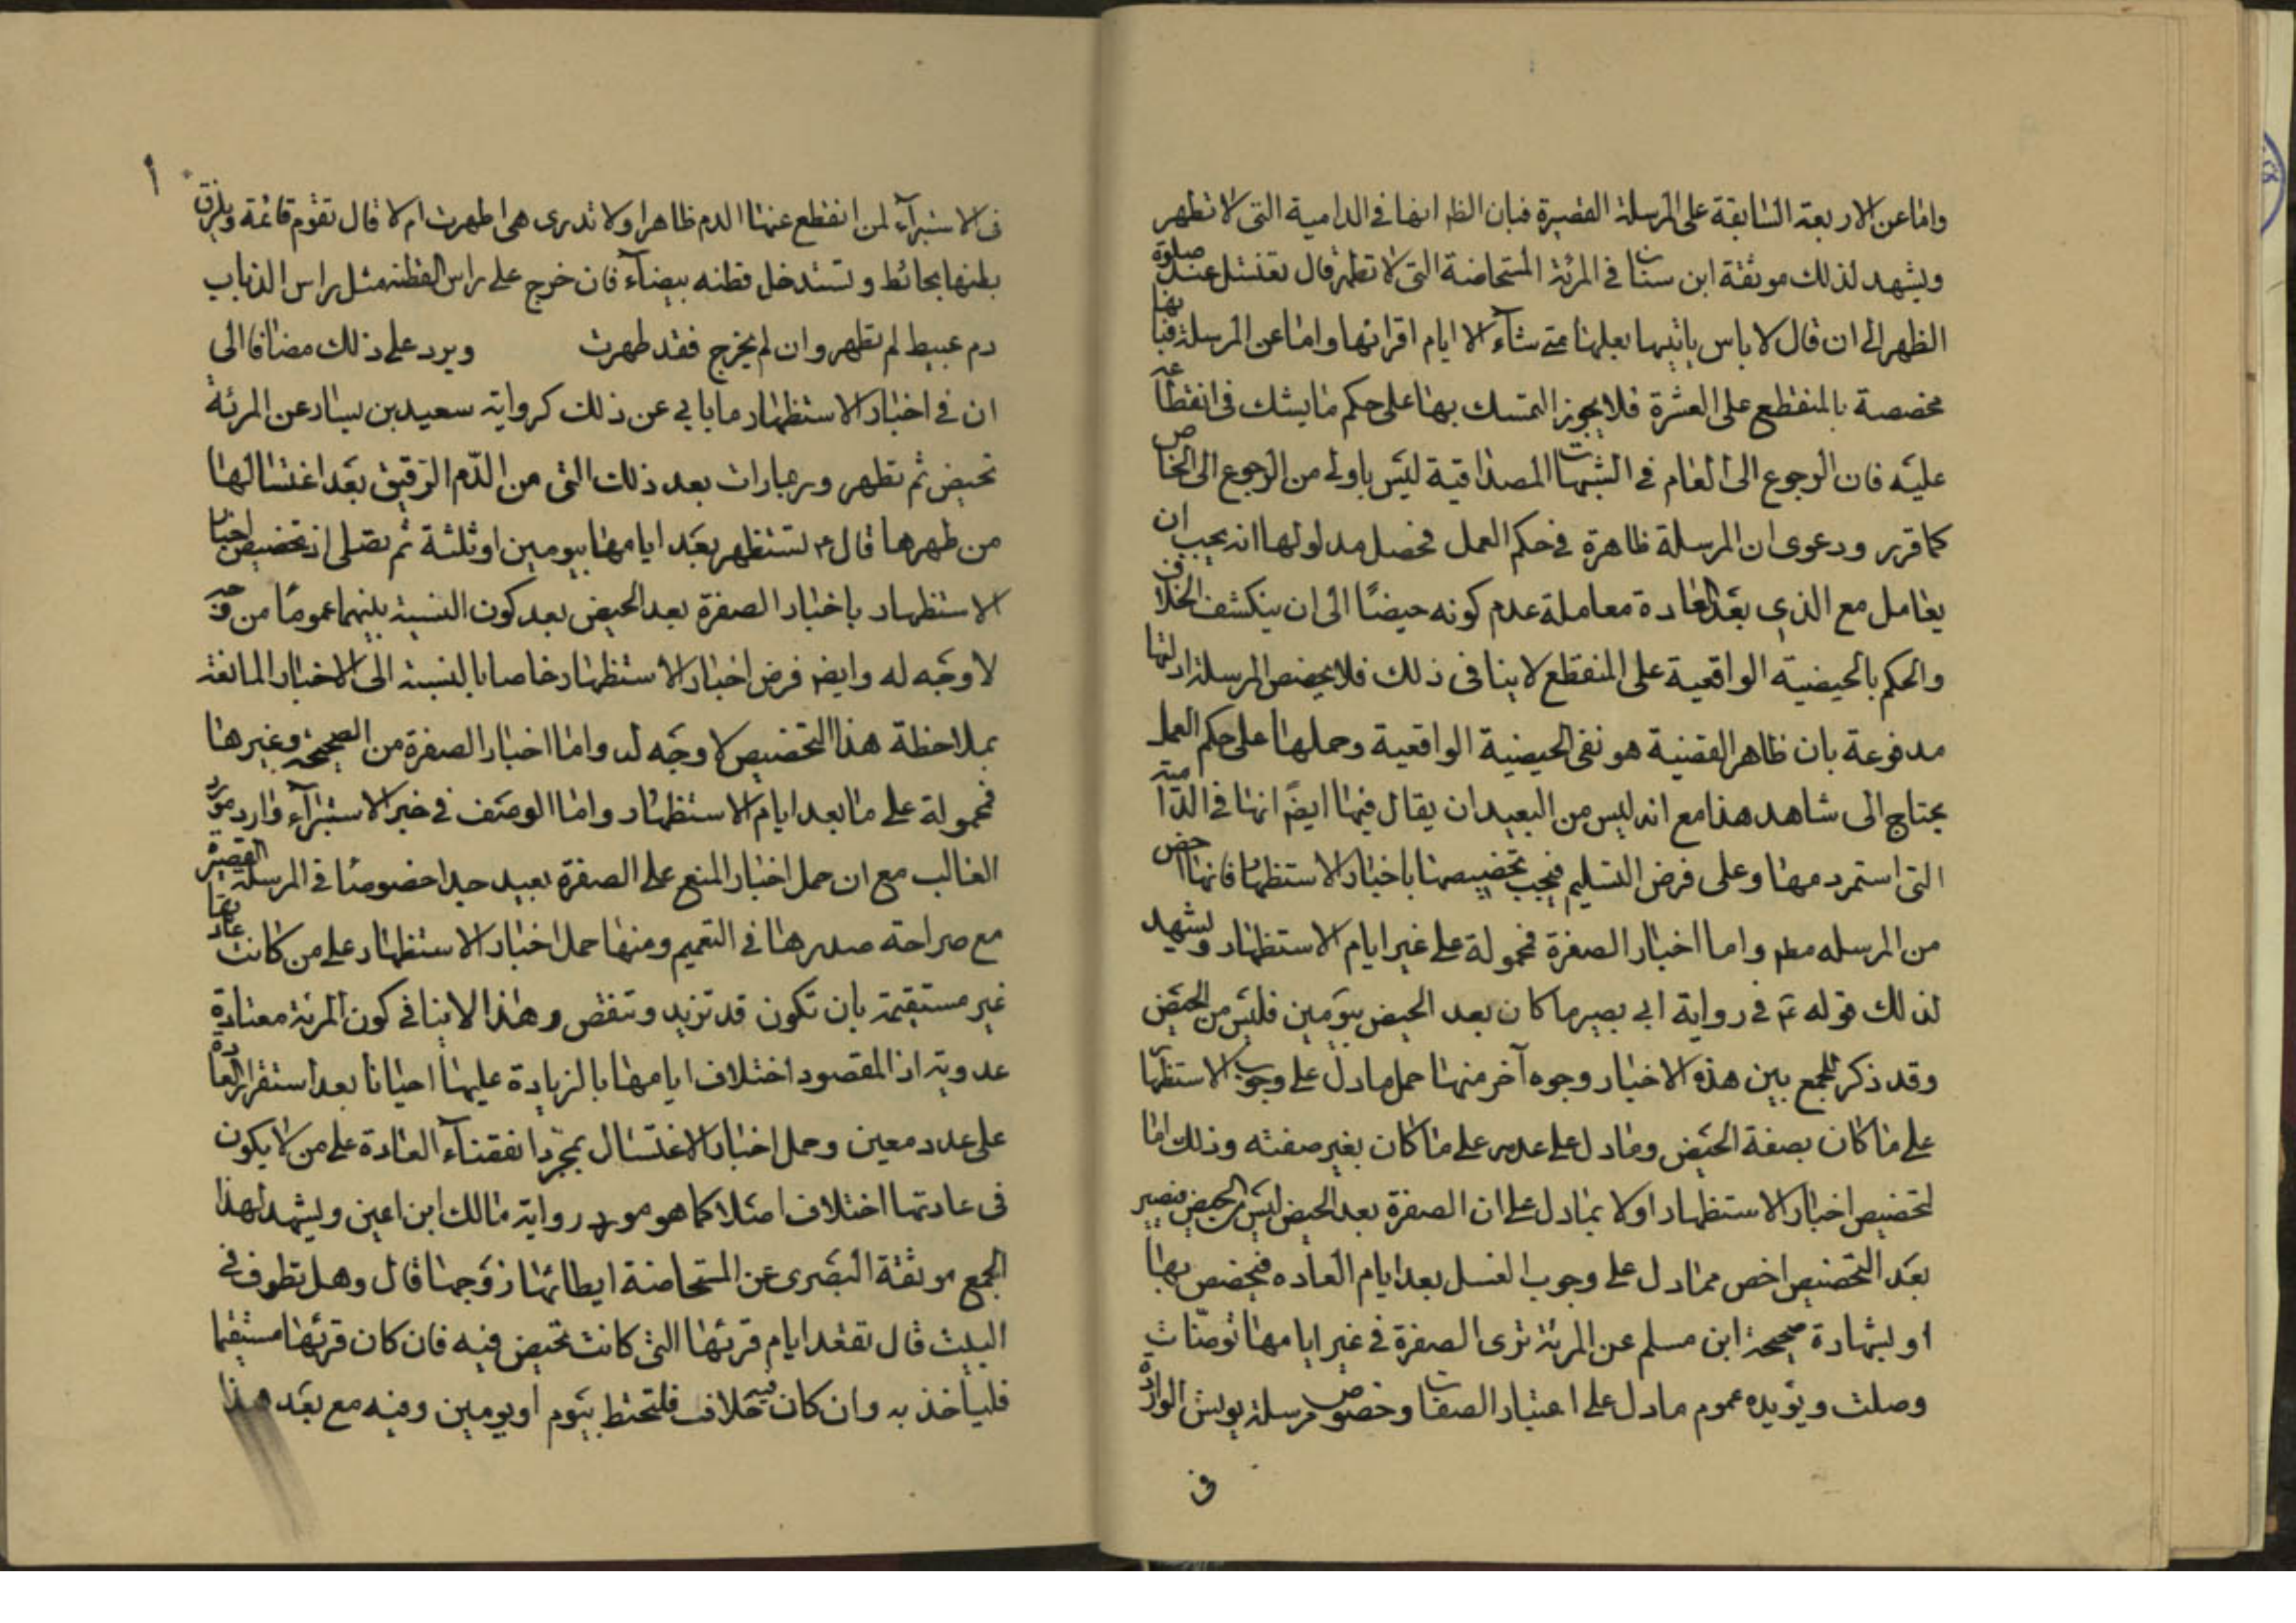 واما عن الاربعة السابقة على المرسلة القصيرة فبان الظ انها في الدامية التي لا تطهر
ويشهد لذلك موثقة ابن سنان في المرئة المستحاضة التي لا تطهر قال تغتسل عند صلوة
الظهر الى ان قال لا باس باتيها بعلها متى شآء الا ايام اقرائها واما عن المرسلة فبانها
مخصصة بالمنقطع على العشرة فلا يجوز التمسك بها على حكم ما يشك في انقطاعه
عليه فان الرجوع الى العام في الشبهات المصداقية ليس باولى من الرجوع الى الخاص
كما قرر ودعوى ان المرسلة ظاهرة في حكم العمل فحصل مدلولها انه يجب ان
يعامل مع الذي بعد العادة معاملة عدم كونه حيضا الى ان ينكشف الخلاف
والحكم بالحيضية الواقعية على المنقطع لا ينافى ذلك فلا يخصص المرسلة ادلتها
مدفوعة بان ظاهر القضية هو نفى الحيضية الواقعية وحملها على حكم العمل
يحتاج الى شاهد هذا مع انه ليس من البعيد ان يقال فيها ايضً انها في الدامية
التي استمر دمها وعلى فرض التسليم فيجب تخصيصها باخبار الاستظهار فانها اخص
من المرسله مطم واما اخبار الصفرة فمحمولة على غير ايام الاستظهار ويشهد
لذلك قوله ع في رواية ابي بصير ما كان بعد الحيض بيومين فليس من الحيض
وقد ذكر للجمع بين هذه الاخبار وجوه آخر منها حمل ما دل على وجوب الاستظهار
على ما كان بصفة الحيض وما دل على عدمه على ما كان بغير صفته وذلك اما
لتخصيص اخبار الاستظهار اولا بما دل على ان الصفرة بعد الحيض ليس من الحيض فيصير
بعد التخصيص اخص مما دل على وجوب الغسل بعد ايام العاده فيخصص بها
او بشهادة صحيحة ابن مسلم عن المرئة ترى الصفرة في غير ايامها توضات
وصلت ويؤيده عموم ما دل على اعتبار الصفات وخصوص مرسلة يونس الواردة
في
في الاستبرآء لمن انقطع عنها الدم ظاهرا ولا تدرى هى اطهرت ام لا قال تقوم قائمة ويلزق
بطنها بحائط وتستدخل قطنه بيضآء فان خرج على راس القطنه مثل راس الذباب
دم عبيط لم تطهر وان لم يخرج فقد طهرت ويرد على ذلك مضافا الى
ان في اخبار الاستظهار ما يابي عن ذلك كرواية سعيد بن يسار عن المرئة
تحيض ثم تطهر وربما رات بعد ذلك الشئ من الدّم الرقيق بعد اغتسالها
من طهرها قال ع تستظهر بعد ايامها بيومين او ثلثة ثم تصلى اذ تخصيص اخبار
الاستظهار باخبار الصفرة بعد الحيض بعد كون النسبة بينهما عموما من وجه
لا وجه له وايض فرض اخبار الاستظهار خاصا بالنسبة الى الاخبار المانعة
بملاحظة هذا التخصيص لا وجه له واما اخبار الصفرة من الصحيحة وغيرها
فمحمولة على ما بعد ايام الاستظهار واما الوصف في خبر الاستبرآء وارد مورد
الغالب مع ان حمل اخبار المنع على الصفرة بعيد جدا خصوصا في المرسلة القصيرة
مع صراحة صدرها في التعميم ومنها حمل اخبار الاستظهار على من كانت عادتها
غير مستقيمة بان تكون قد تزيد وتنقص وهذا لا ينافي كون المرئة معتادة
عدوية اذ المقصود اختلاف ايامها بالزيادة عليها احيانا بعد استقرار العادة
على عدد معين وحمل اخبار الاغتسال بمجرد انقضآء العادة على من لا يكون
فى عادتها اختلاف اصلا كما هو مورد رواية مالك ابن اعين ويشهد لهذا
الجمع موثقة البصرى عن المستحاضة ايطائها زوجها قال وهل تطوف في
البيت قال تقعد ايام قرئها التى كانت تحيض فيه فان كان قرئها مستقيما
فليأخذ به وان كان فيه خلاف فلتحتط بيوم او يومين وفيه مع بعد هذا